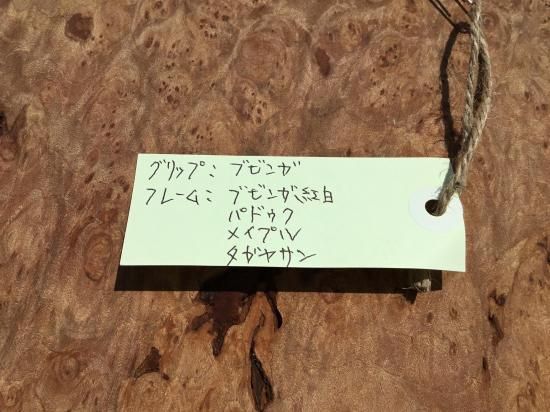 グリップ：ブビンガ
フレーム：ブビンガ紅白
パドゥク
メイプル
タガヤサン